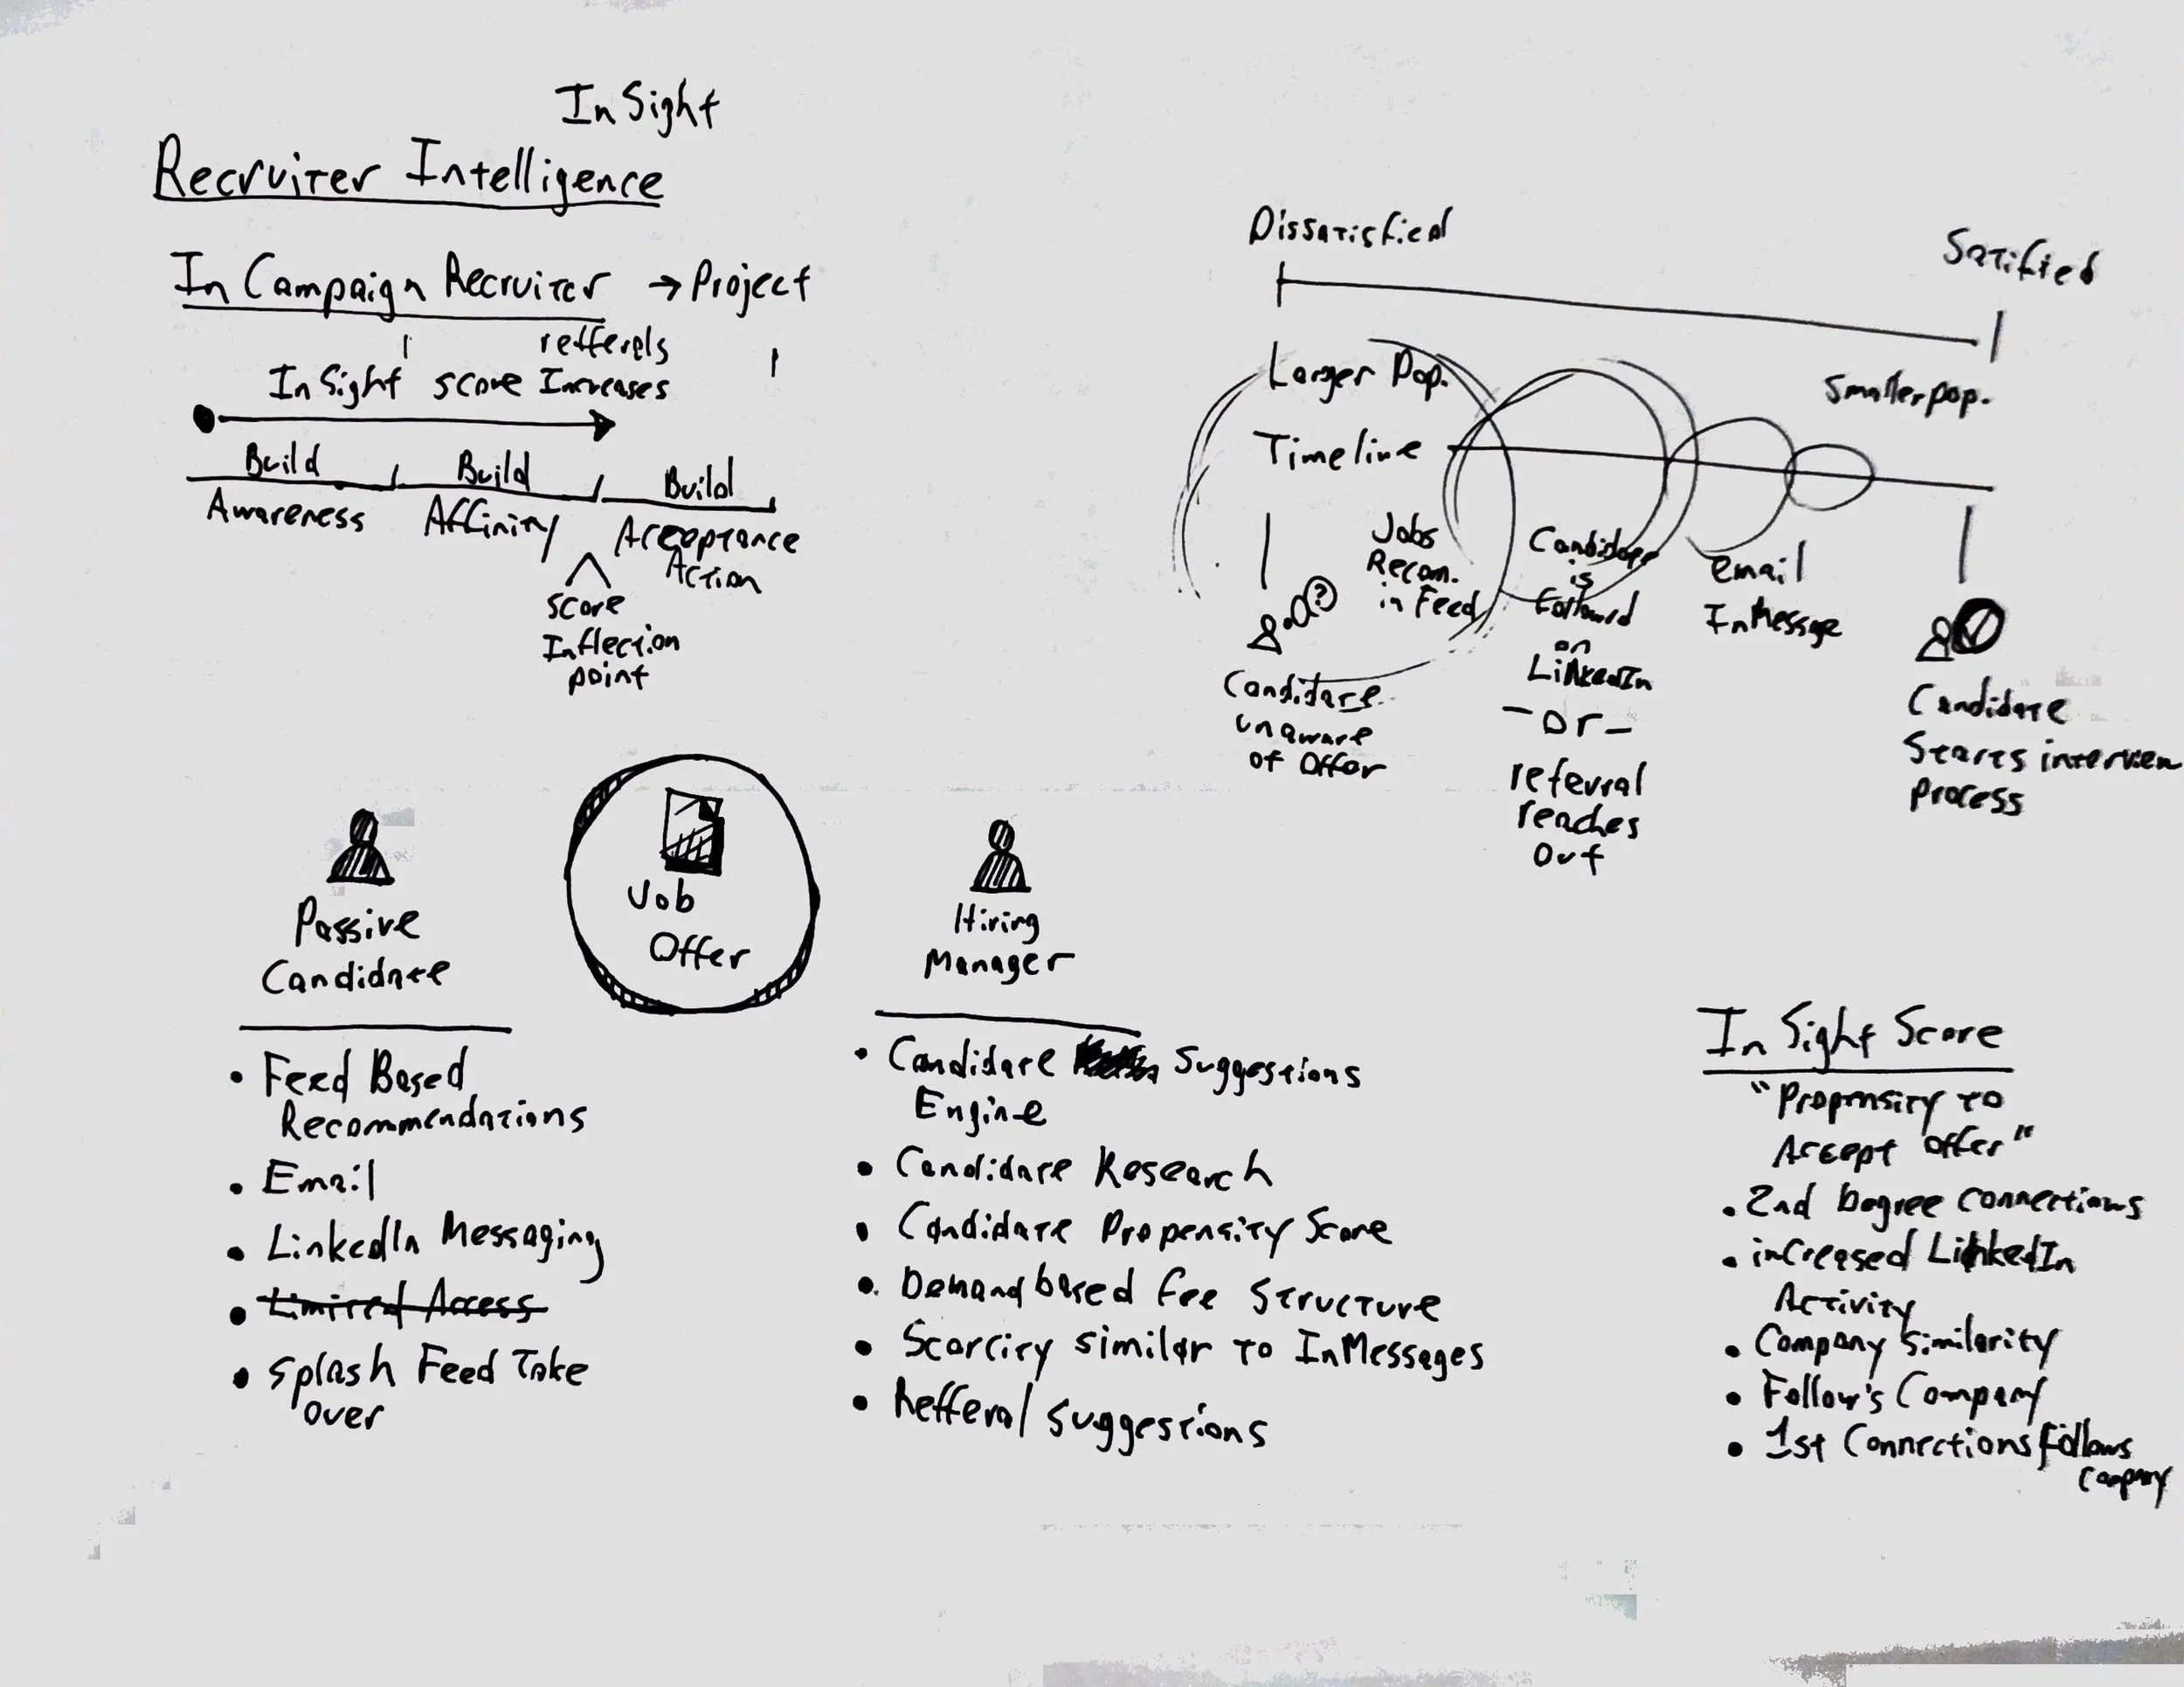 InSight
Recruiter Intelligence
InCampaign Recruiter → Project
refferels
InSight score Increases
Build
Awareness
Build
Affinity
Build
Acceptance
Action
score
Inflection
point
Dissatisfied
Satified
Larger Pop.
Smaller pop.
Timeline
Jobs
Recom.
in Feed
Candidate
is
Followed
on
LinkedIn
- or -
referral
reaches
Out
email
InMessage
?
Candidate
unaware
of Offer
Candidate
Starts interview
Process
Passive
Candidate
• Feed Based
Recommendations
• Email
• LinkedIn Messaging
• Limited Access
• Splash Feed Take
over
Job
Offer
Hiring
Manager
• Candidate Suggestions
Engine
• Candidate Research
• Candidate Propensity Score
• Demand based fee structure
• Scarcity similar to InMessages
• Refferal suggestions
InSight Score
"Propensity to
Accept offer"
• 2nd Degree connections
• increased LinkedIn
Activity
• Company Similarity
• Follow's Company
• 1st Connections Follows
company